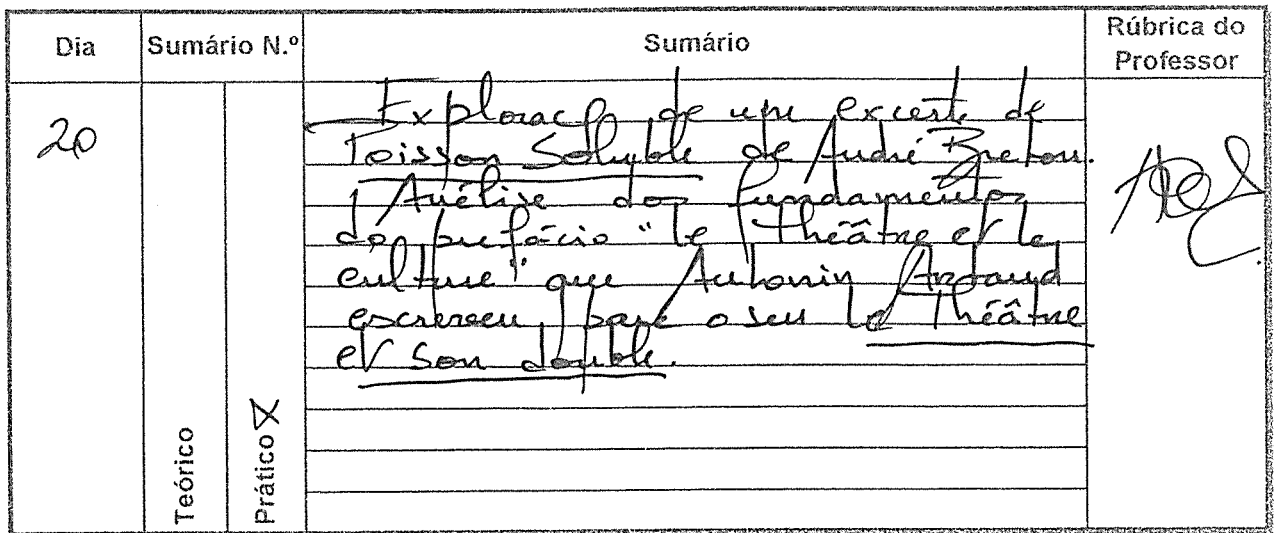 Dia
Sumário N.º
Sumário
Rúbrica do
Professor
20
Teórico
Prático X
Exploração de um excerto de
Poisson Soluble de André Breton.
Análise dos fundamentos
do prefácio "Le Théâtre et la
culture" que Antonin Artaud
escreveu para o seu Le Théâtre
et son double.